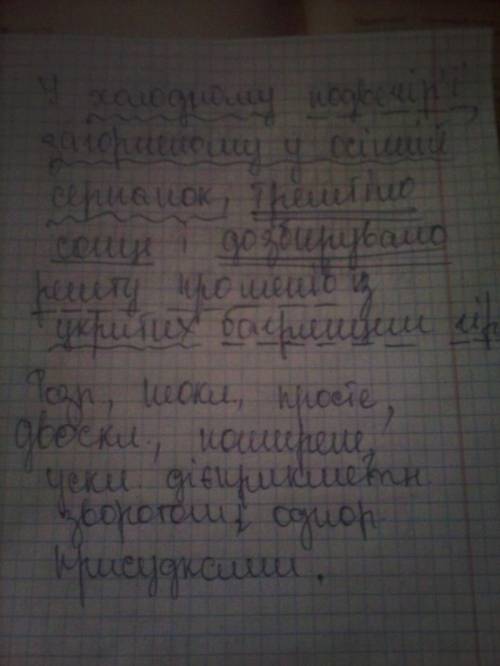 У холодному надвечір'ї,
загорненому у осінній
серпанок, тремтіло
сонце і дозбирувало
решту проміння із
укритих багрянцем гір.
Розп, неокл, просте,
двоскл., поширене,
ускл. дієприкметн
зворотом і однор
присудками.